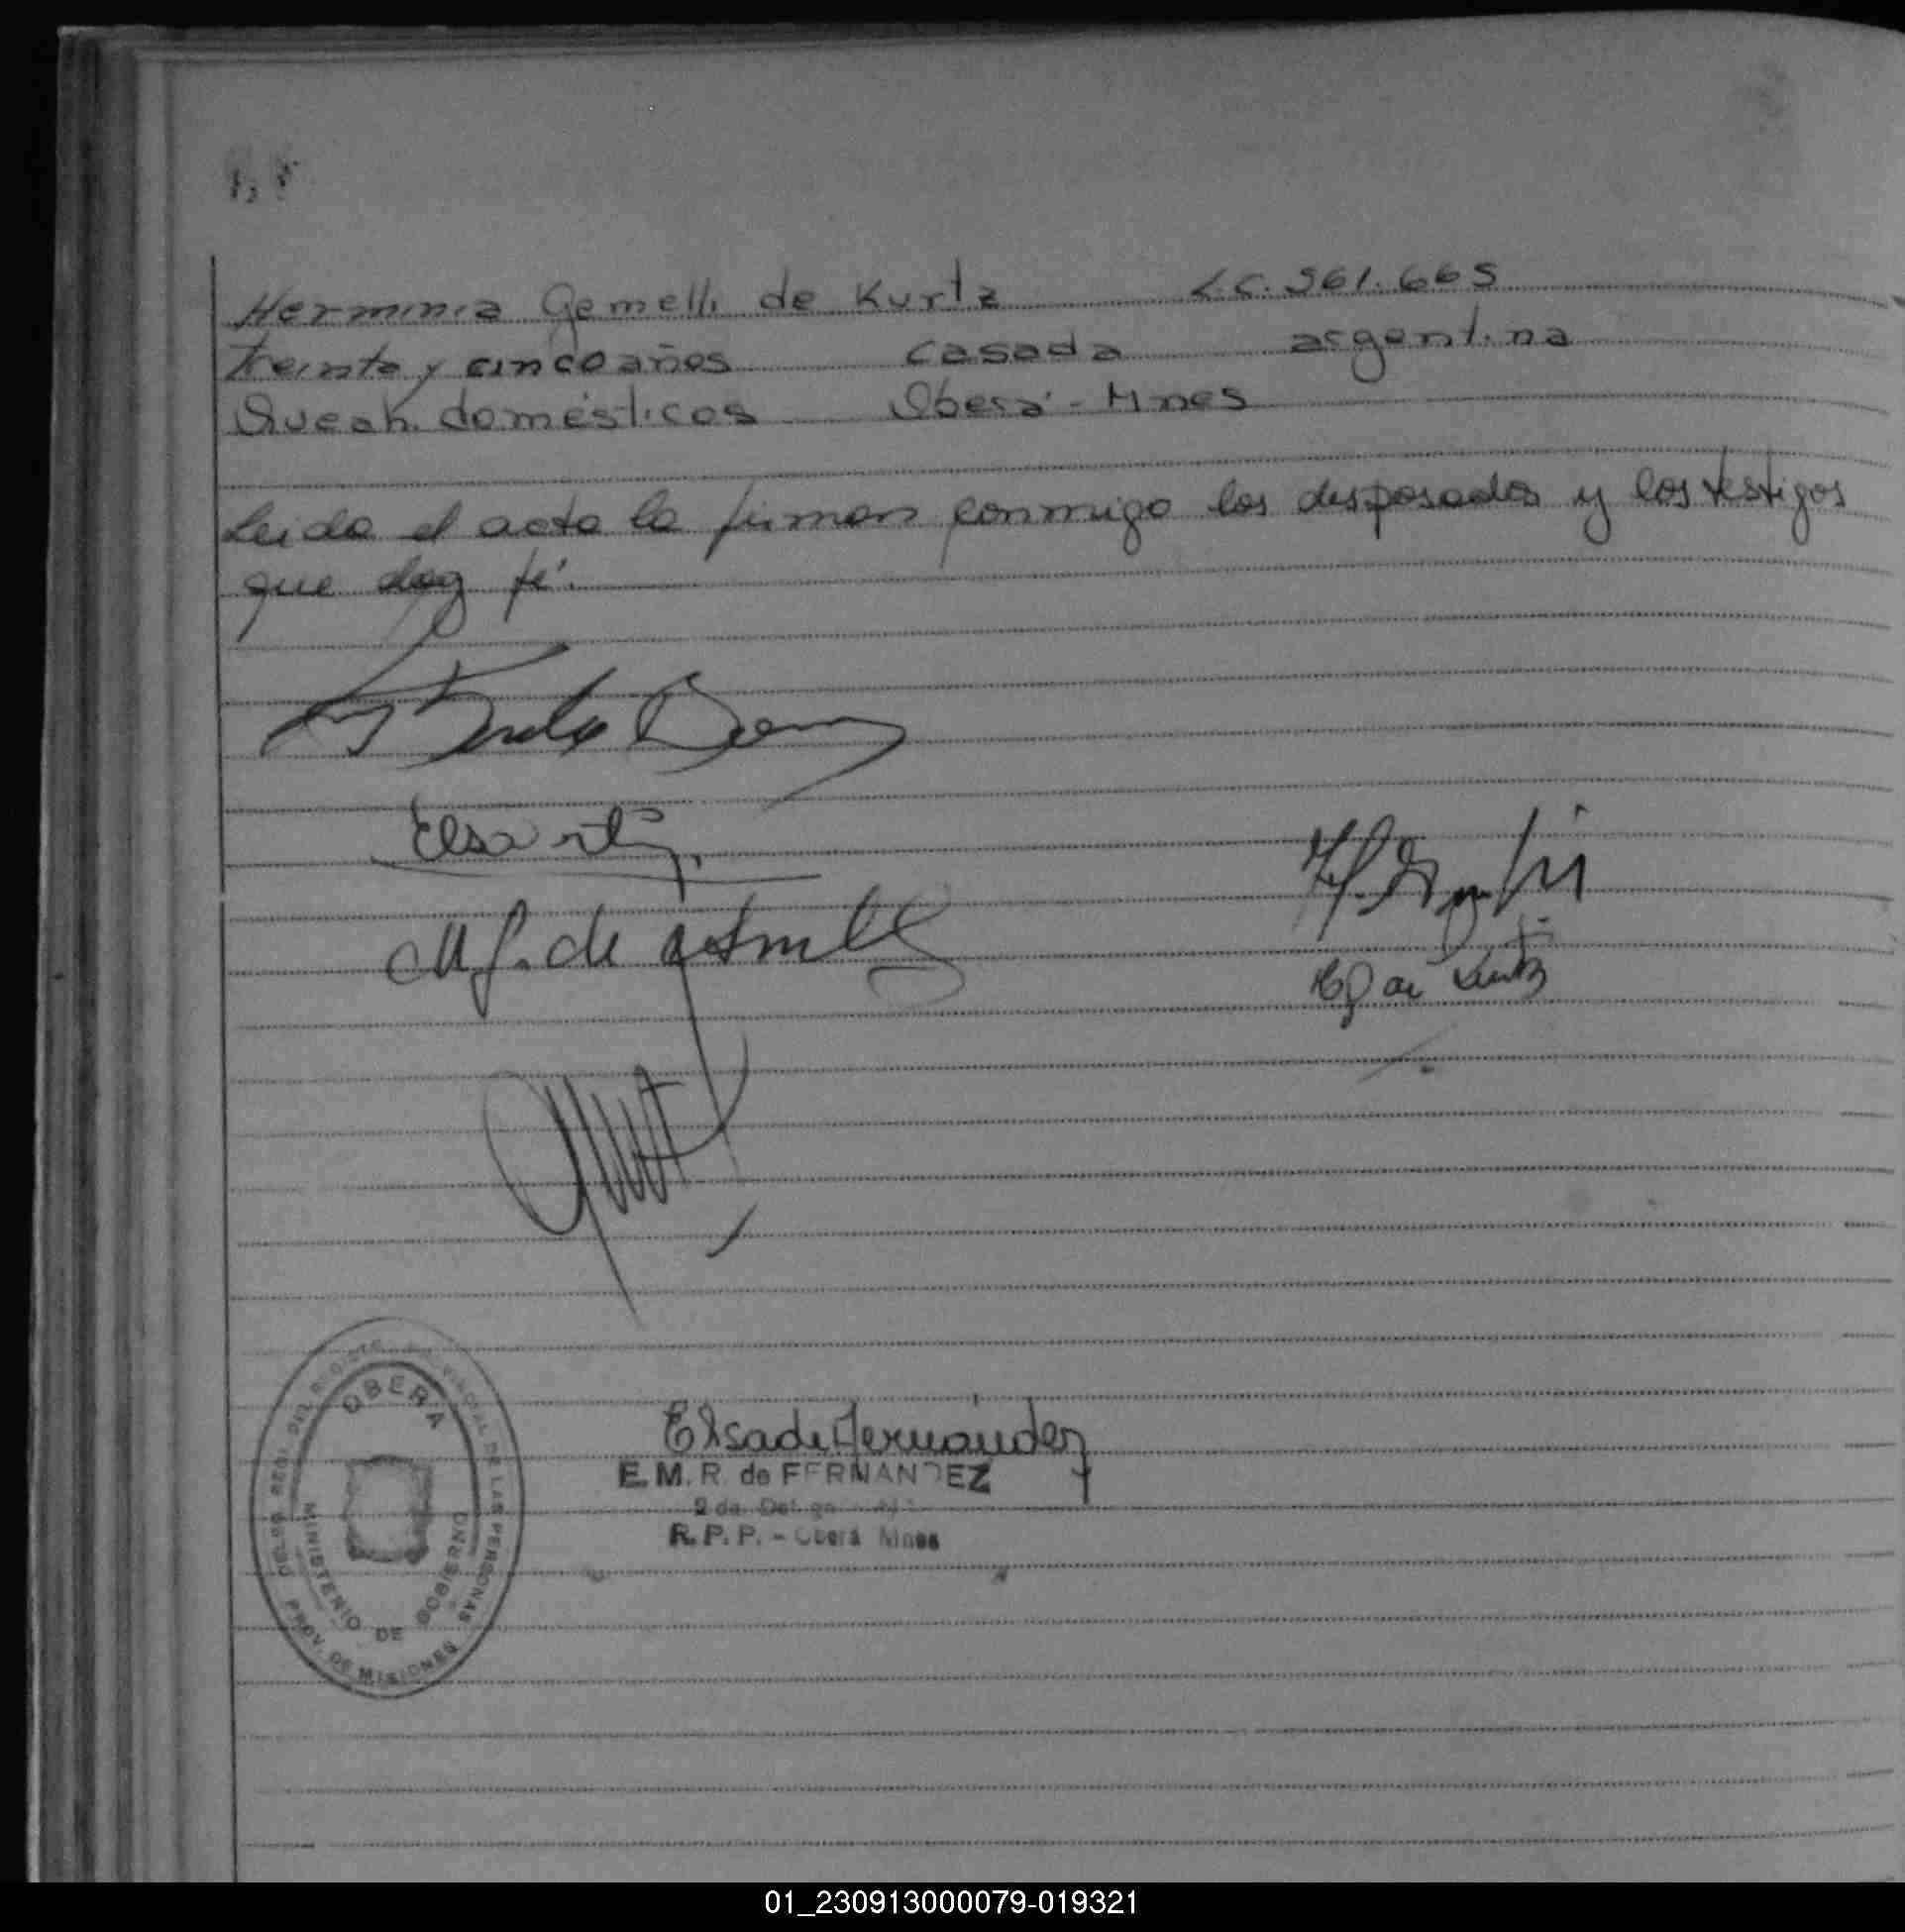 Herminia Gemelli de Kurtz L.C. 561.665
treinta y cinco años casada argentina
Queah. domésticos Oberá - Mnes
Leida el acta la firman conmigo los desposados y los testigos
que doy fé.
Elsa
M. G. de
H G de Kurtz
OBERA
DEL REGISTRO PROVINCIAL DE LAS PERSONAS
MINISTERIO DE GOBIERNO
PROV. DE MISIONES
Elsa de Fernandez
E. M. R. de FERNANDEZ
R. P. P. - Oberá Mnes
01_230913000079-019321